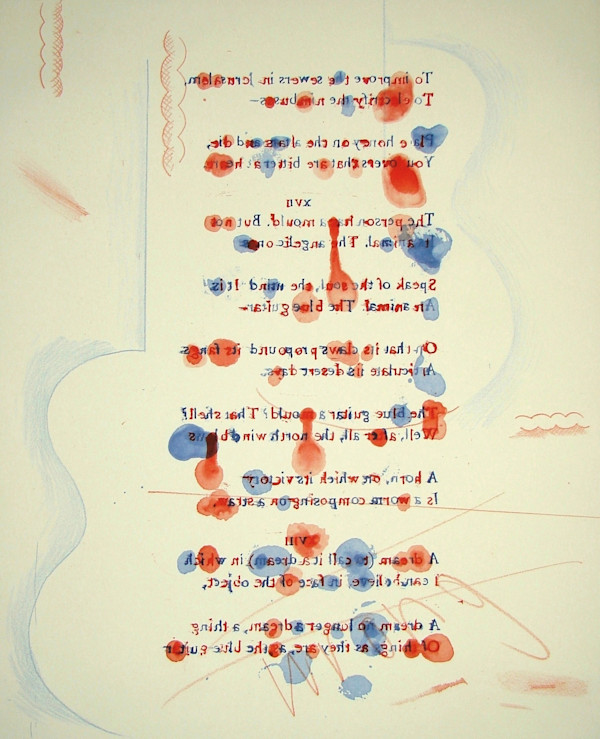 To improve the sewers in Jerusalem,
To electrify the nimbuses—
Place honey on the altars and die,
You lovers that are bitter at heart.
XVII
The person has a mould. But not
Its animal. The angelic ones
Speak of the soul, the mind. It is
An animal. The blue guitar—
On that its claws propound, its fangs
Articulate its desert days.
The blue guitar a mould? That shell?
Well, after all, the north wind blows
A horn, on which its victory
Is a worm composing on a straw.
XVIII
A dream (to call it a dream) in which
I can believe, in face of the object,
A dream no longer a dream, a thing,
Of things as they are, as the blue guitar